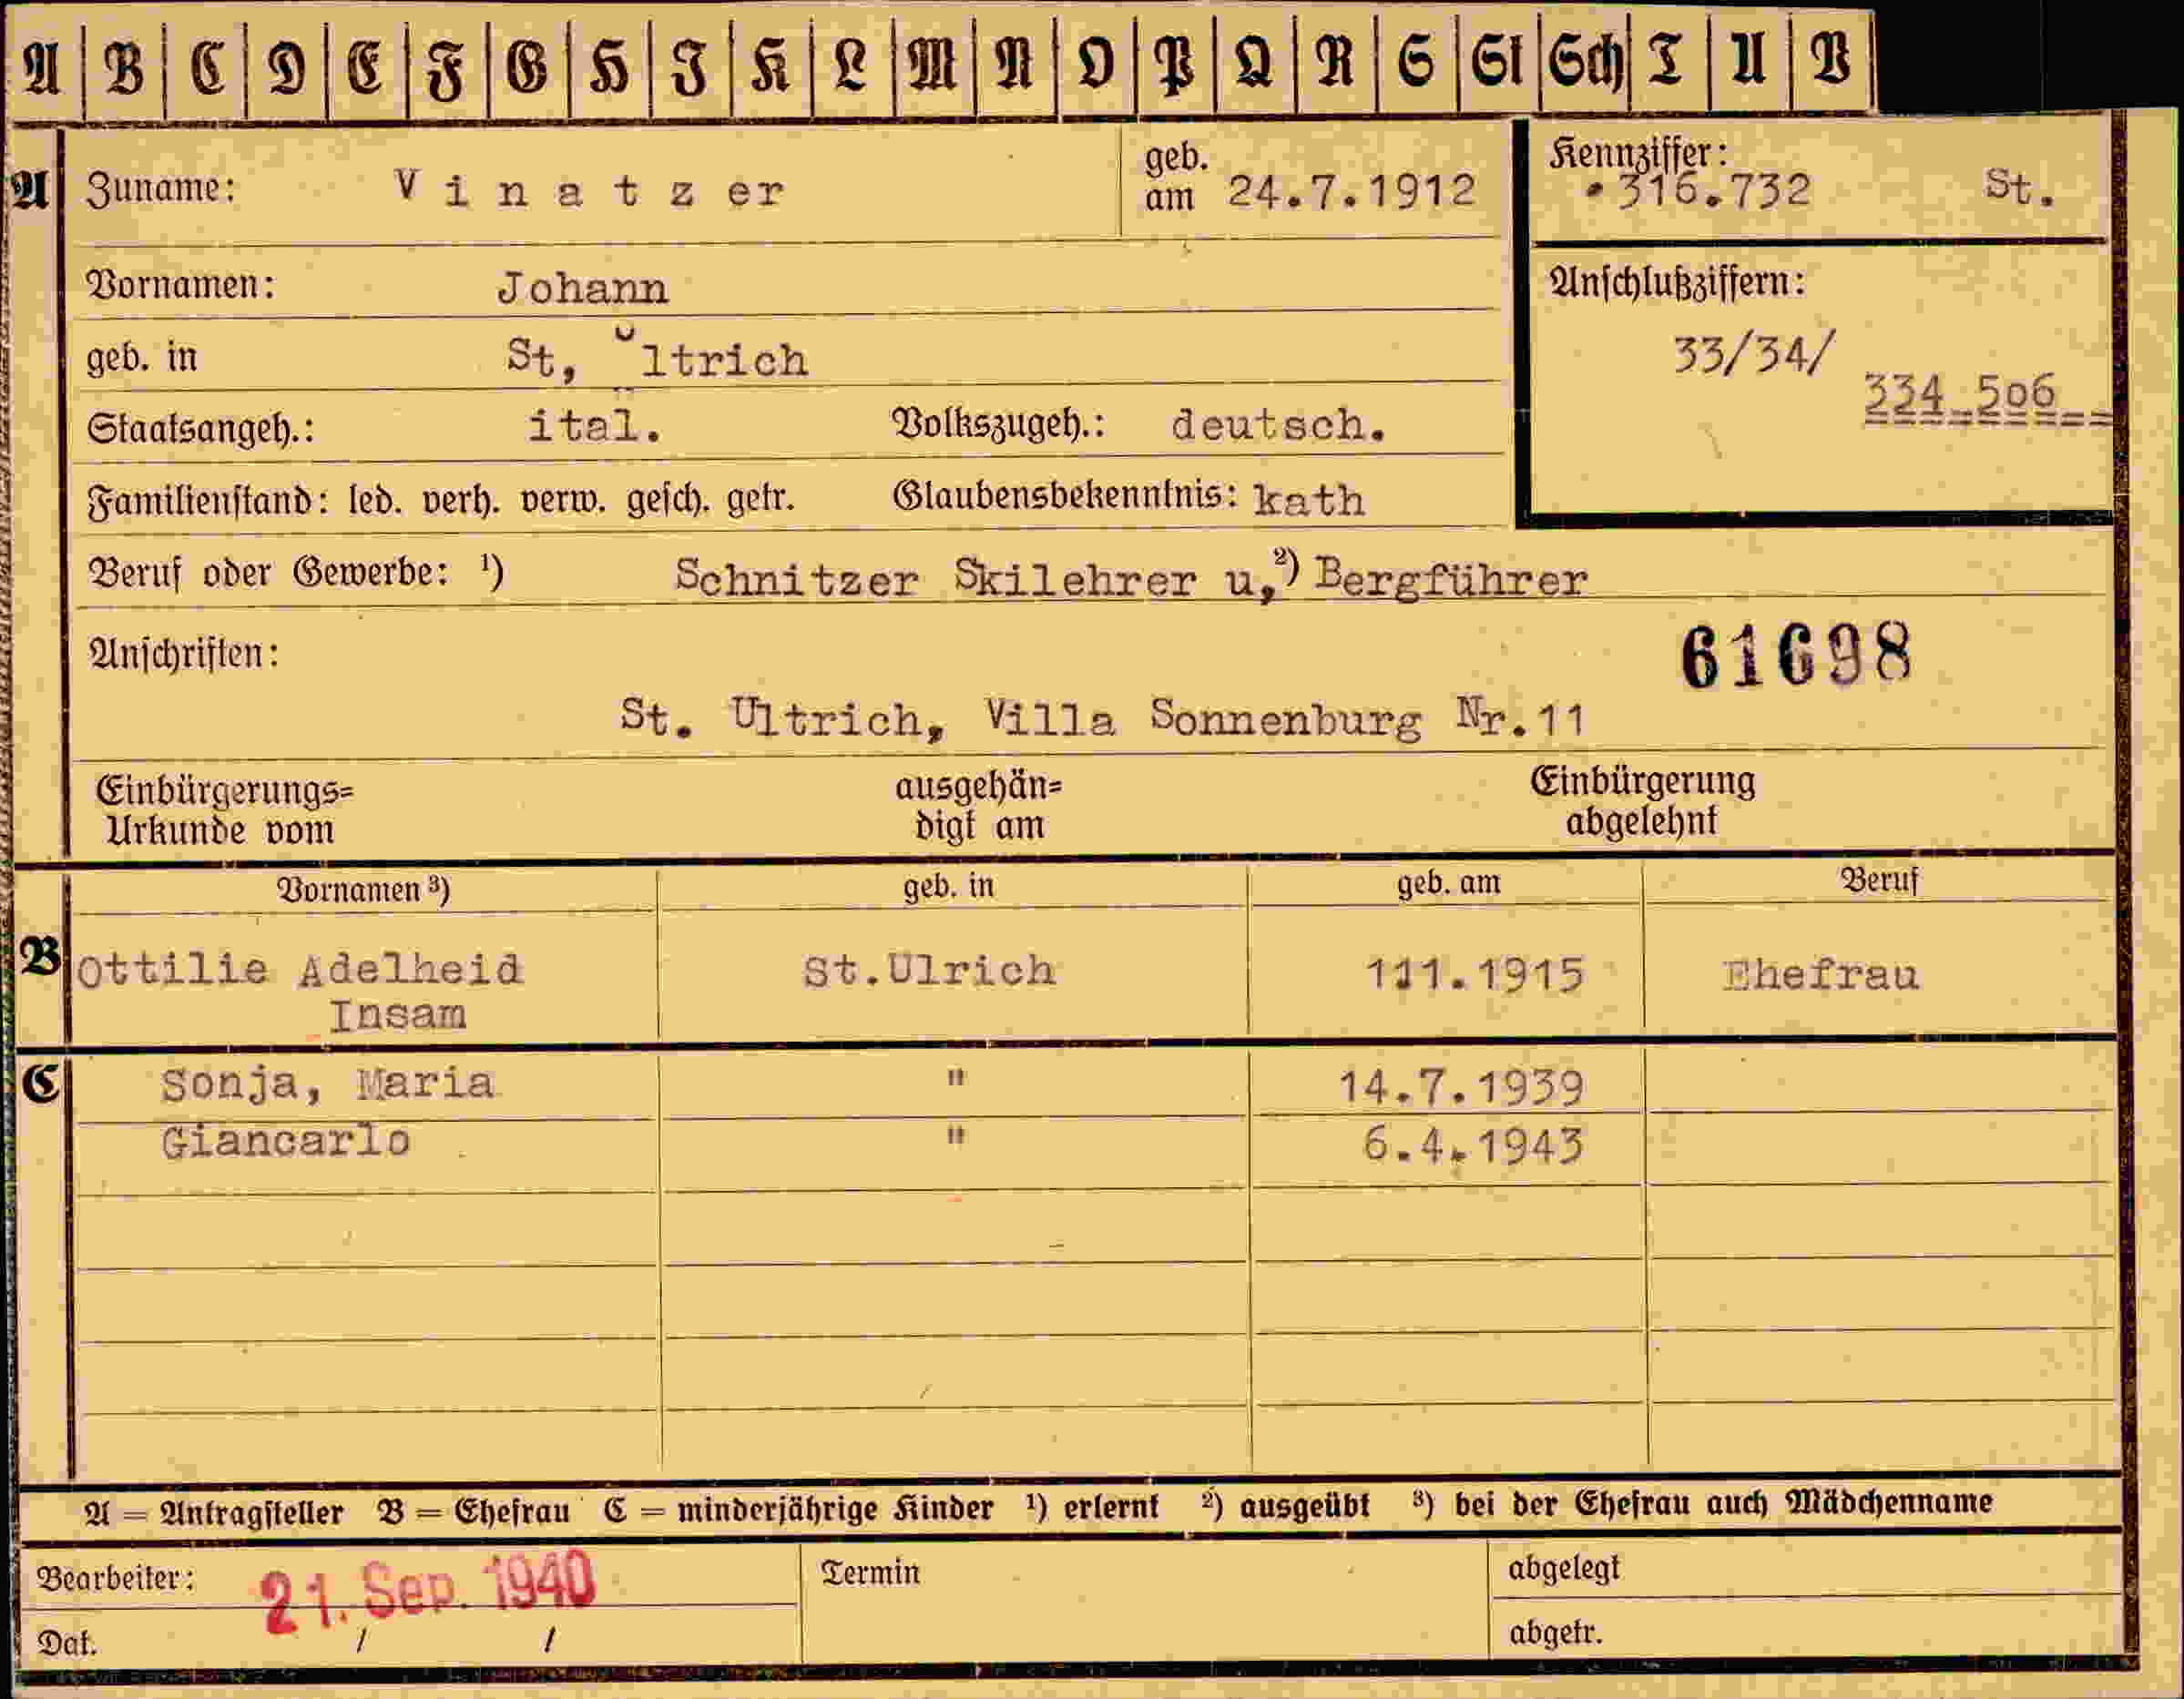 A B C D E F G H I K L M N O P Q R S St Sch T U V
A Zuname: Vinatzer geb. am 24.7.1912
Kennziffer: 316.732 St.
Vornamen: Johann
Anschlußziffern:
33/34/
334.506
geb. in St, Ultrich
Staatsangeh.: ital. Volkszugeh.: deutsch.
Familienstand: led. verh. verw. gesch. getr. Glaubensbekenntnis: kath
Beruf oder Gewerbe: ¹) Schnitzer Skilehrer u, ²) Bergführer
Anschriften: 61698
St. Ultrich, Villa Sonnenburg Nr.11
Einbürgerungs= ausgehän= Einbürgerung
Urkunde vom digt am abgelehnt
Vornamen ³) geb. in geb. am Beruf
B Ottilie Adelheid St.Ulrich 111.1915 Ehefrau
Insam
C Sonja, Maria " 14.7.1939
Giancarlo " 6.4.1943
A = Antragsteller B = Ehefrau C = minderjährige Kinder ¹) erlernt ²) ausgeübt ³) bei der Ehefrau auch Mädchenname
Bearbeiter: 21. Sep. 1940 Termin abgelegt
Dat. / / abgetr.